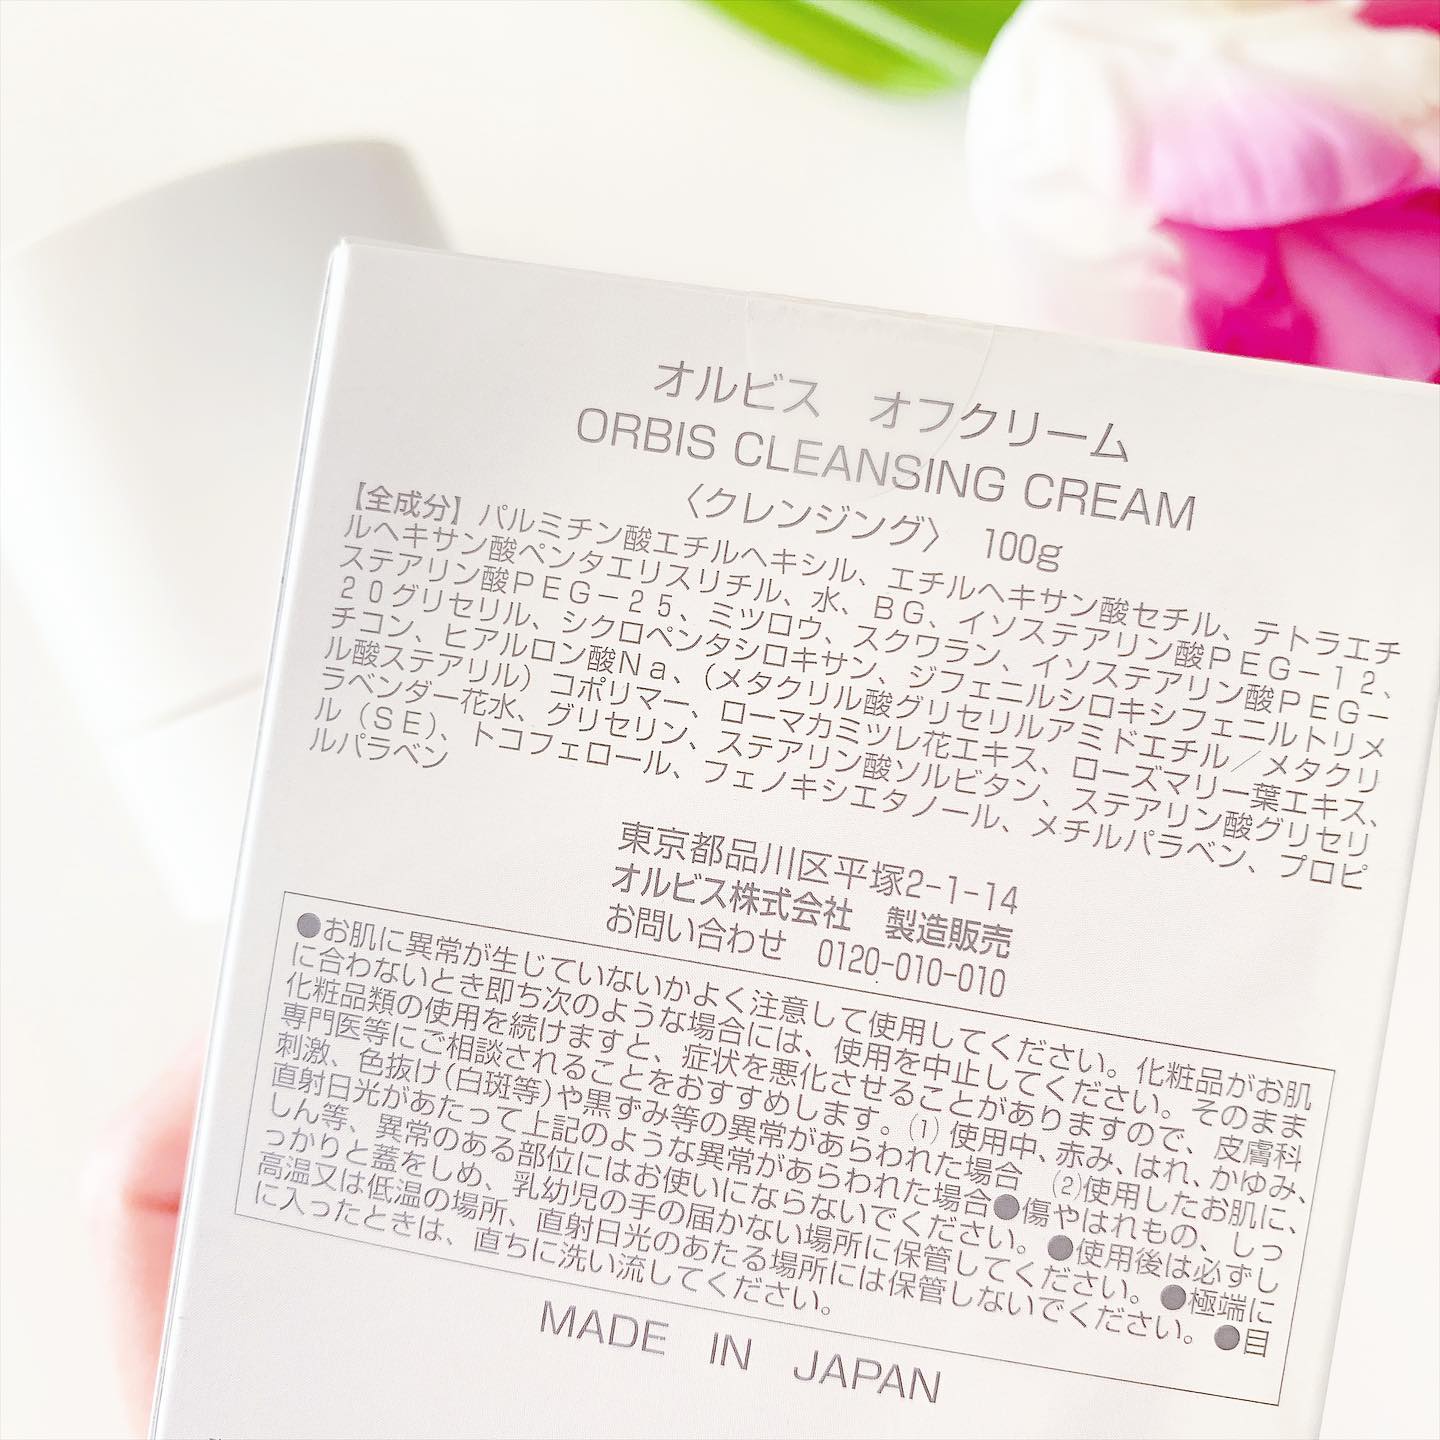 オルビス　オフクリーム
ORBIS CLEANSING CREAM
〈クレンジング〉 100g
【全成分】パルミチン酸エチルヘキシル、エチルヘキサン酸セチル、テトラエチ
ルヘキサン酸ペンタエリスリチル、水、BG、イソステアリン酸PEG－12、
ステアリン酸PEG－25、ミツロウ、スクワラン、イソステアリン酸PEG－
20グリセリル、シクロペンタシロキサン、ジフェニルシロキシフェニルトリメ
チコン、ヒアルロン酸Na、（メタクリル酸グリセリルアミドエチル／メタクリ
ル酸ステアリル）コポリマー、ローマカミツレ花エキス、ローズマリー葉エキス、
ラベンダー花水、グリセリン、ステアリン酸ソルビタン、ステアリン酸グリセリ
ル（SE）、トコフェロール、フェノキシエタノール、メチルパラベン、プロピ
ルパラベン
東京都品川区平塚2-1-14
オルビス株式会社　製造販売
お問い合わせ　0120-010-010
●お肌に異常が生じていないかよく注意して使用してください。化粧品がお肌
に合わないとき即ち次のような場合には、使用を中止してください。そのまま
化粧品類の使用を続けますと、症状を悪化させることがありますので、皮膚科
専門医等にご相談されることをおすすめします。(1)使用中、赤み、はれ、かゆみ、
刺激、色抜け(白斑等)や黒ずみ等の異常があらわれた場合　(2)使用したお肌に、
直射日光があたって上記のような異常があらわれた場合●傷やはれもの、しっ
しん等、異常のある部位にはお使いにならないでください。●使用後は必ずし
っかりと蓋をしめ、乳幼児の手の届かない場所に保管してください。●極端に
高温又は低温の場所、直射日光のあたる場所には保管しないでください。●目
に入ったときは、直ちに洗い流してください。
MADE IN JAPAN